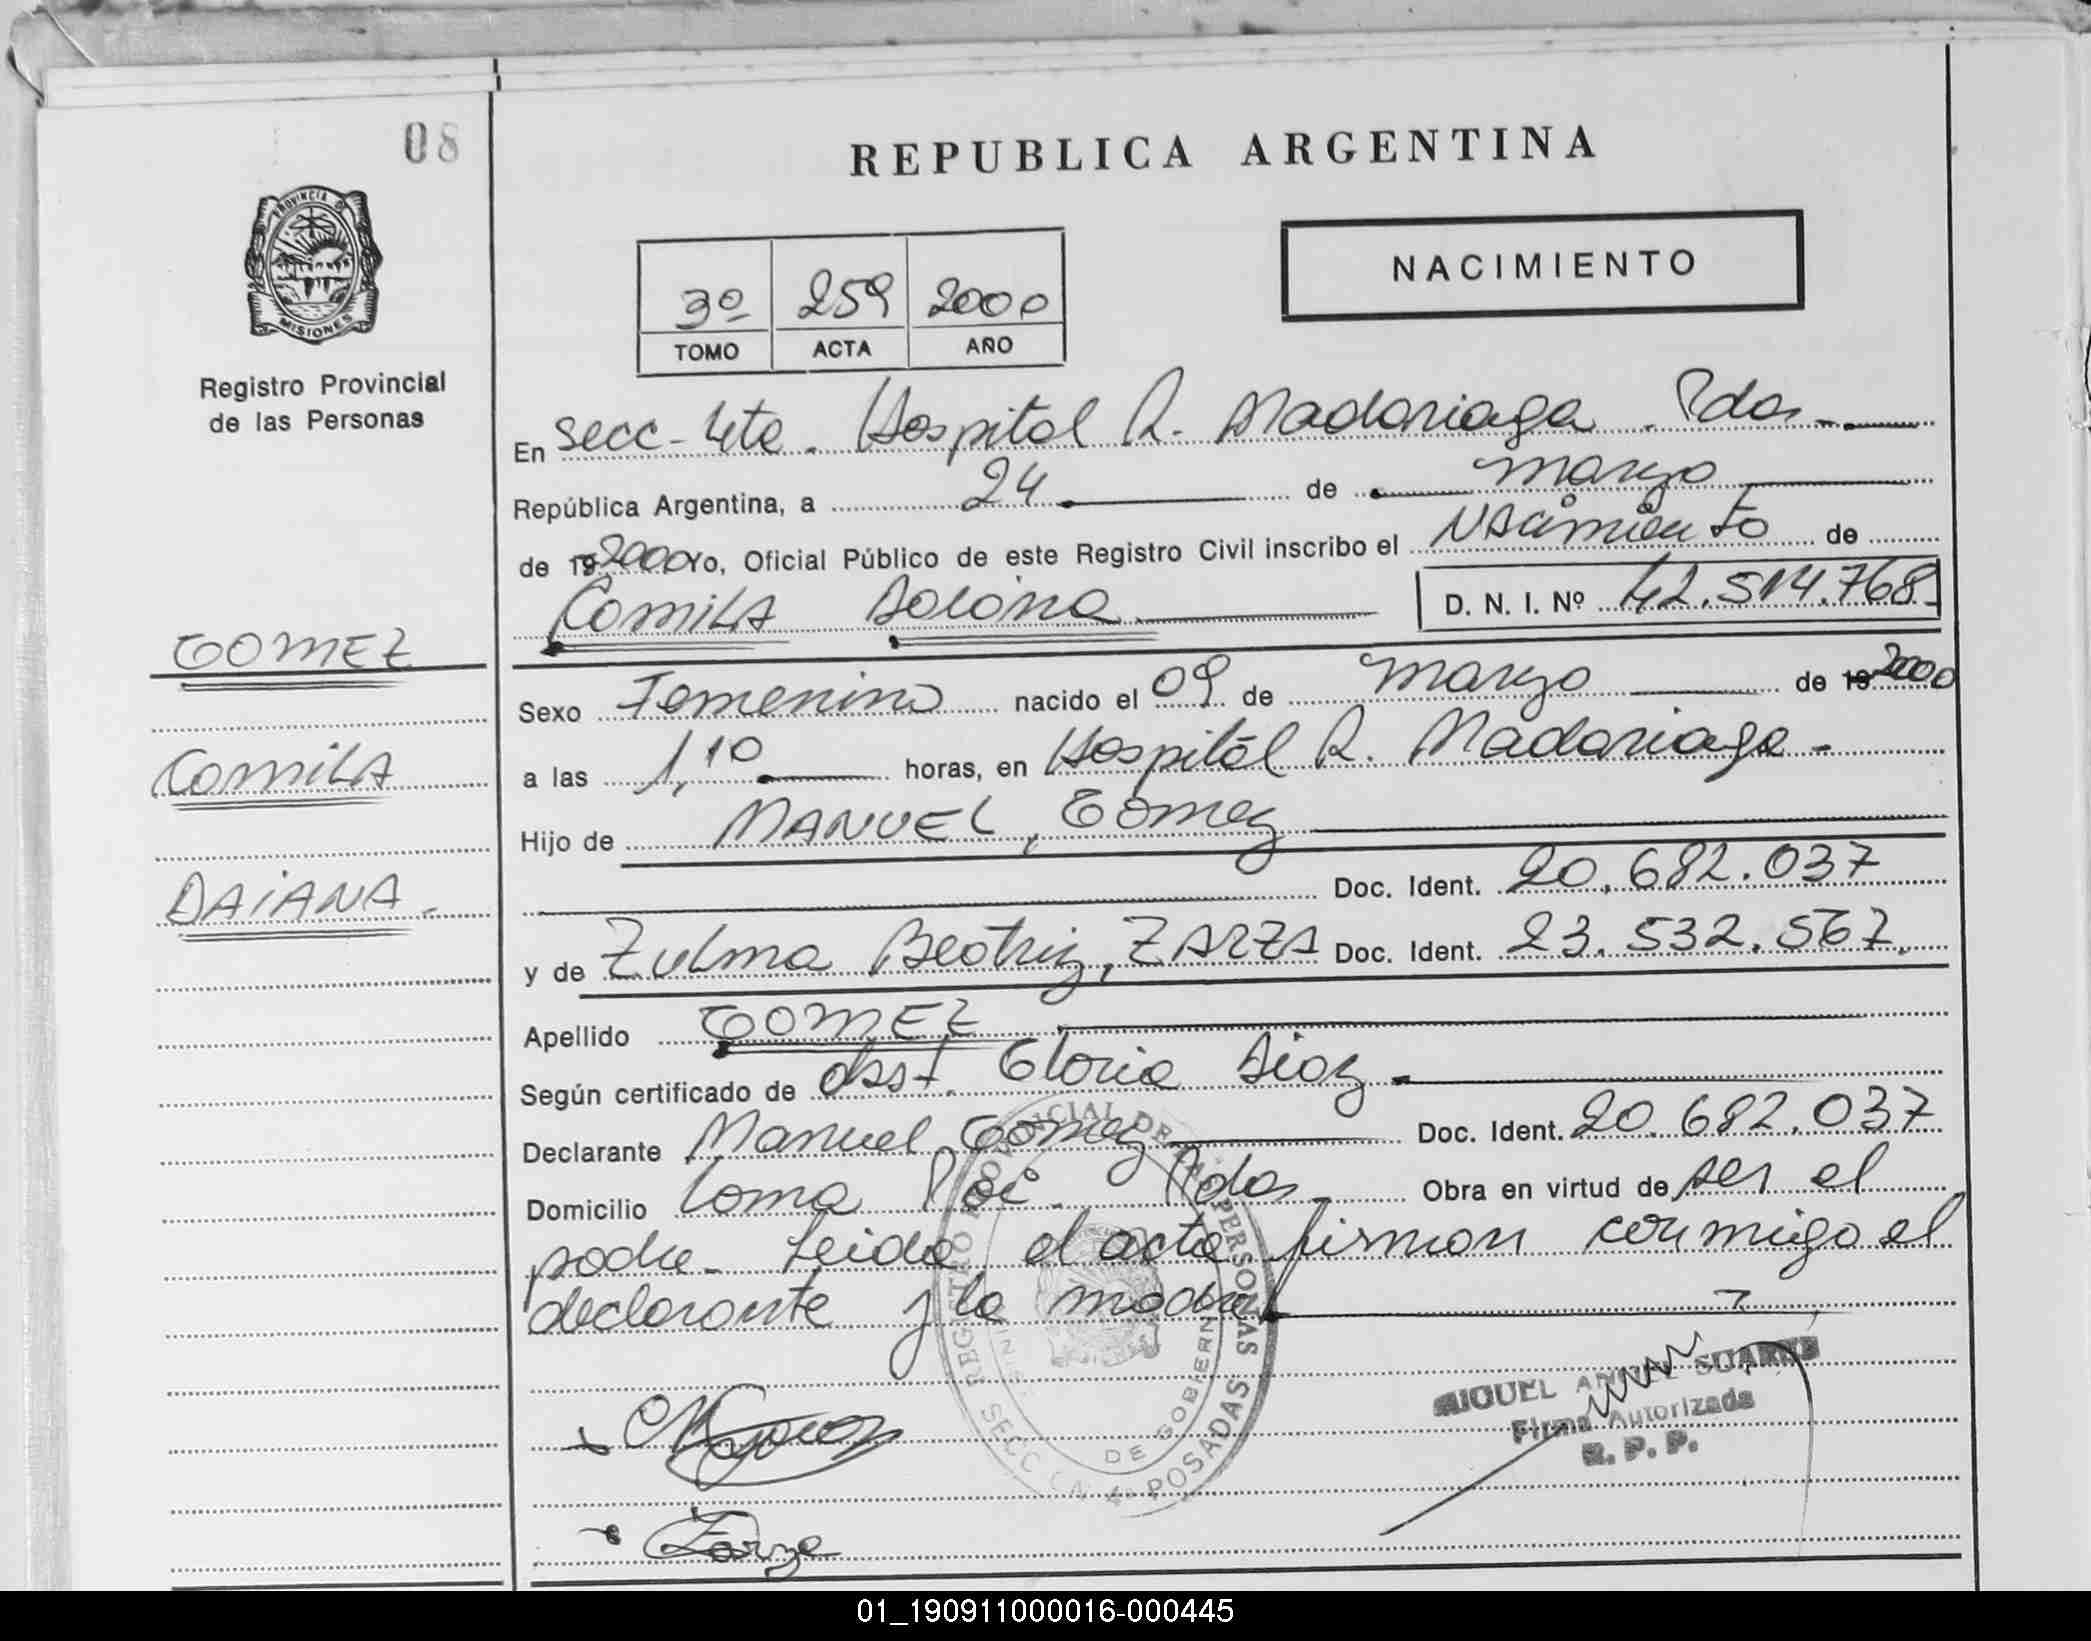 08
REPUBLICA ARGENTINA
PROVINCIA DE
MISIONES
Registro Provincial
de las Personas
NACIMIENTO
3º 259 2000
TOMO ACTA AÑO
En Secc- 4ta. Hospital R. Madariaga. Pdas-
República Argentina, a 24 de marzo
de 19 2000 Yo, Oficial Público de este Registro Civil inscribo el Nacimiento de
Camila Daiana D. N. I. Nº 42.514.768
GOMEZ
Camila
DAIANA.
Sexo Femenino nacido el 09 de marzo de 19 2000
a las 1,10 horas, en Hospital R. Madariaga-
Hijo de MANUEL, Gomez
Doc. Ident. 20.682.037
y de Zulma Beatriz, ZARZA Doc. Ident. 23.532.567.
Apellido GOMEZ
Según certificado de obst. Gloria Diaz-
Declarante Manuel Gomez Doc. Ident. 20.682.037
Domicilio Loma Poi. Pdas- Obra en virtud de ser el
padre- Leida el acta firman conmigo el
declarante y la madre
REGISTRO PROVINCIAL DE LAS PERSONAS
DE GOBIERN
SECCION 4ª POSADAS
MIGUEL ANGEL SUAREZ
Firma Autorizada
R. P. P.
Zarza
01_190911000016-000445